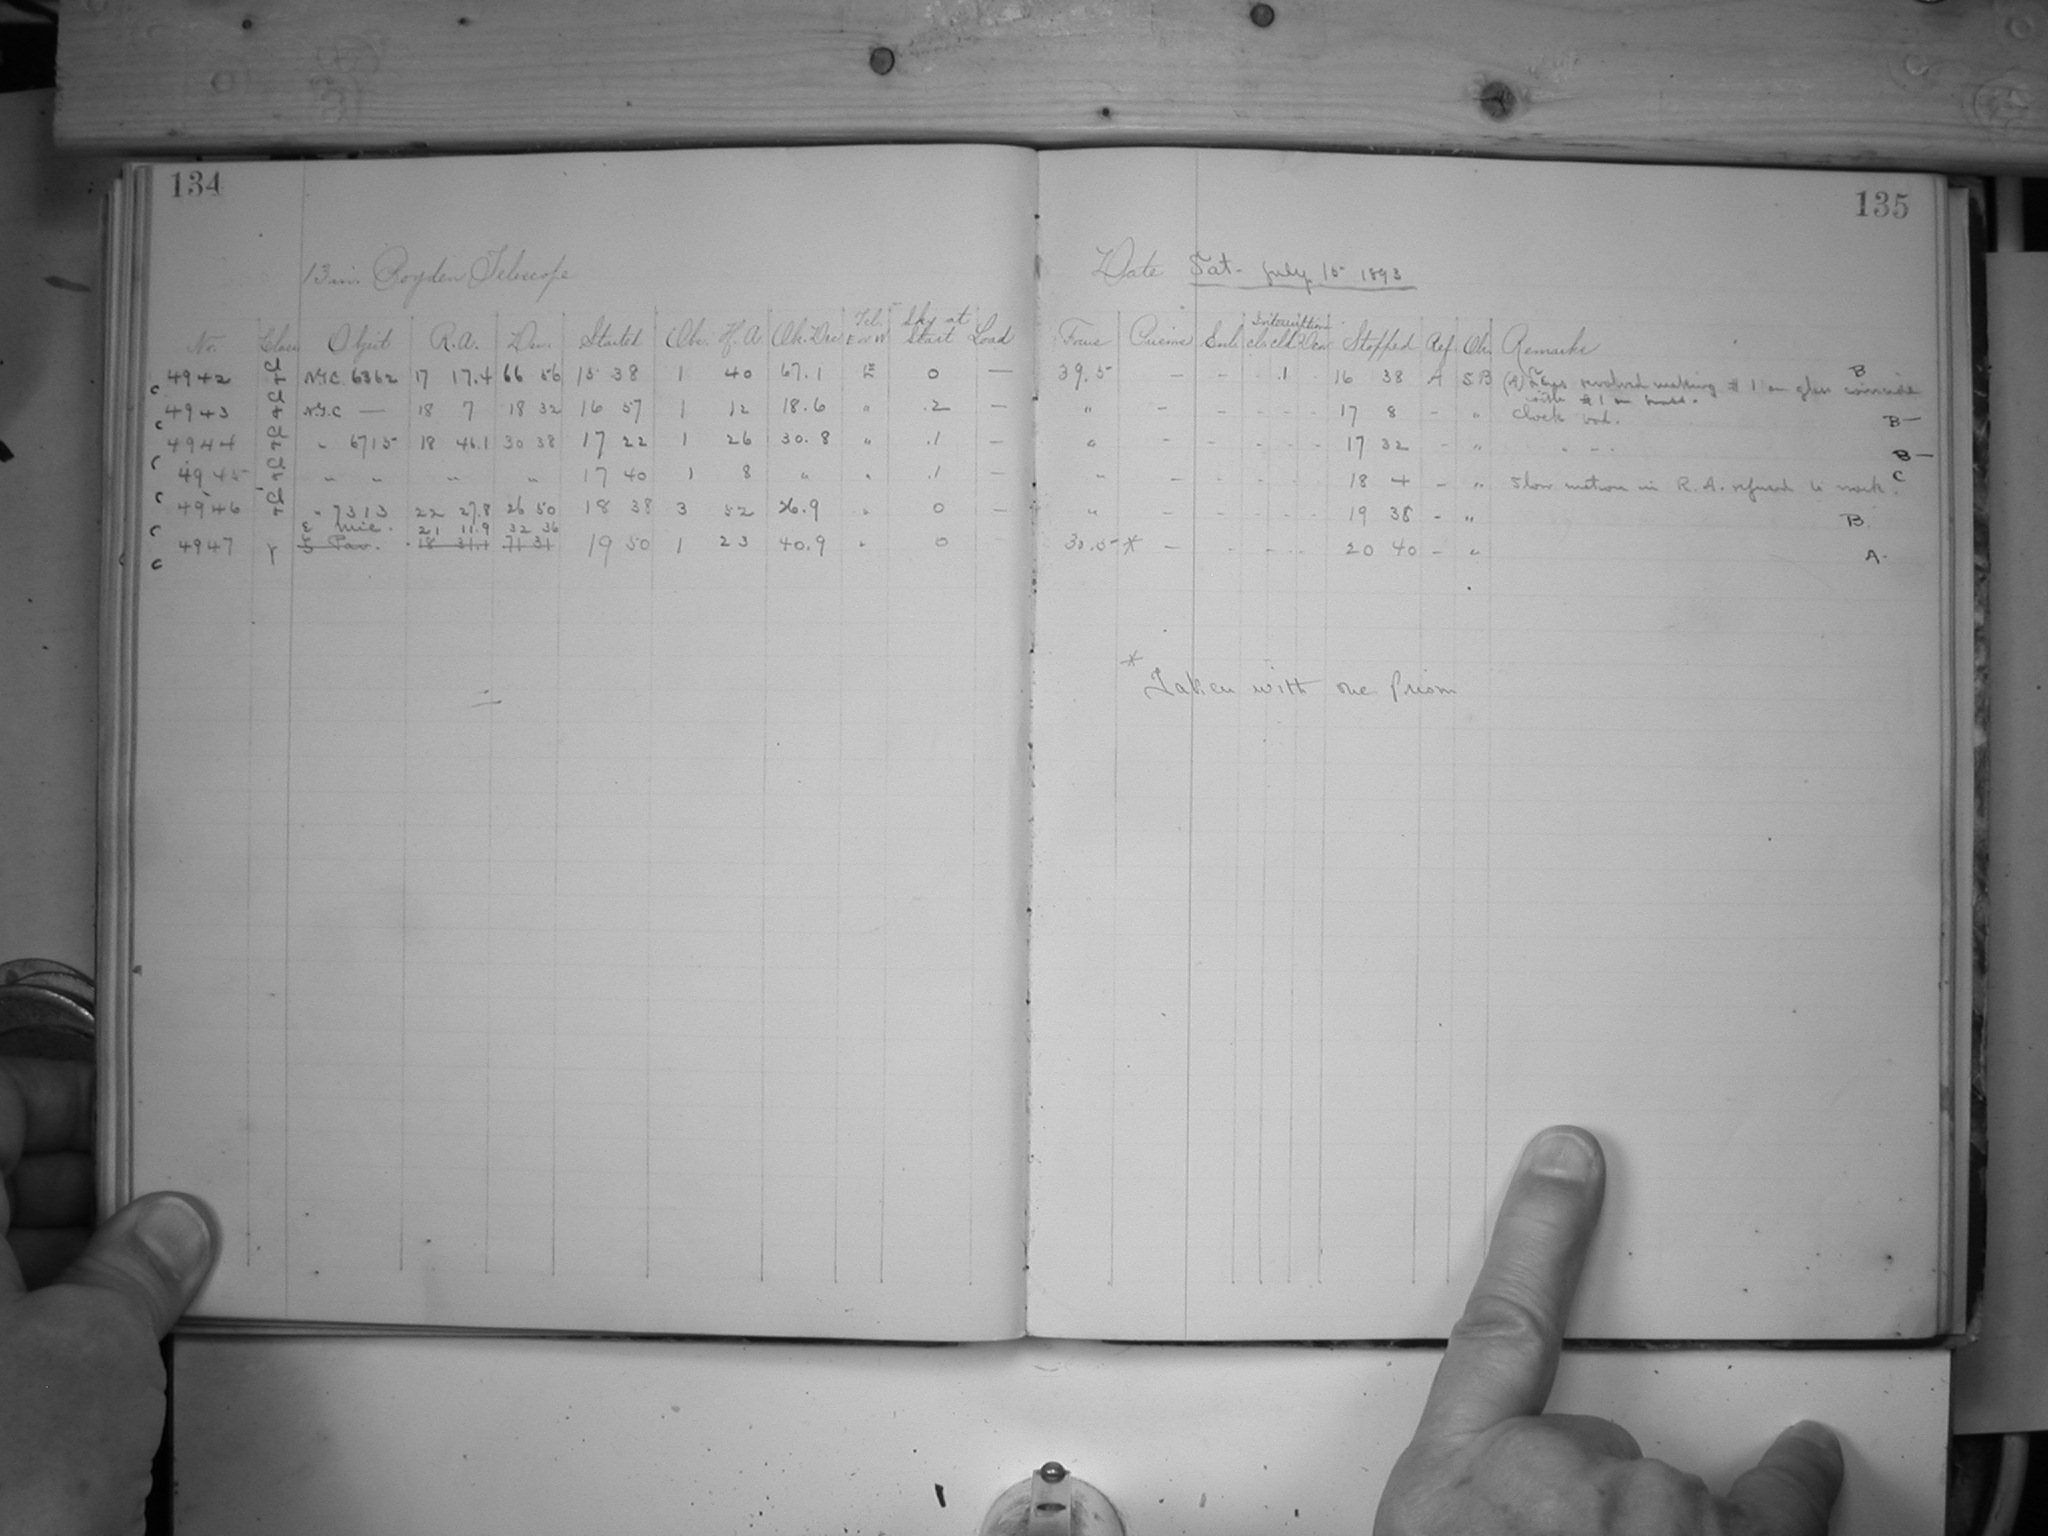 134
13 in. Boyden Telescope
No. Class Object R.A. Dec. Started Obs. H.A. Ob. Dec Tel. E or W Sky at Start Load
4942 N.G.C. 6362 17 17.4 66 56 15 38 1 40 67.1 E 0 —
c 4943 N.G.C — 18 7 18 32 16 57 1 12 18.6 " .2 —
c 4944 " 6715 18 46.1 30 38 17 22 1 26 30.8 " .1 —
c 4945 " " " " 17 40 1 8 " " .1 —
c 4946 " 7313 22 27.8 26 50 18 38 3 52 26.9 " 0 —
ε Mic. 21 11.9 32 36
c 4947 Pav. 18 31.1 71 31 19 50 1 23 40.9 " 0
c
135
Date Sat. July 15 1893
Focus Prisms Interruptions Stopped Ref. Ob. Remarks
39.5 — - - .1 - 16 38 A SB (A) revolved making # 1 on glass coincide B
with # 1 on brass.
" — - - - - 17 8 - " Clock bad. B—
" - - - - - 17 32 - " " - " B—
" - - - - - 18 4 - " Slow motion in R.A. refused to work. C
" - - - - - 19 38 - " B.
30.5 * — - - - - 20 40 - " A-
*
Taken with one Prism